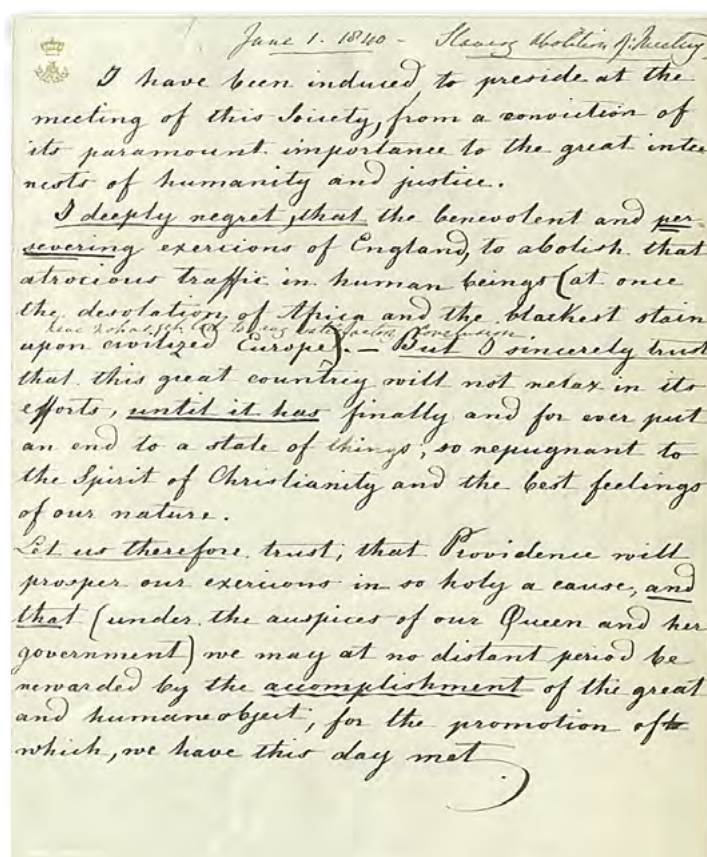 June 1. 1840 - Slavery Abolition Meeting
I have been induced, to preside at the
meeting of this Society, from a conviction of
its paramount importance to the great inte
rests of humanity and justice.
I deeply regret, that the benevolent and per
severing exercions of England, to abolish that
atrocious traffic in human beings (at once
the desolation of Africa and the blackest stain
have not as yet led to any satisfactory Conclusion
upon civilized Europe). — But I sincerely trust
that this great country will not relax in its
efforts, until it has finally and for ever put
an end to a state of things, so repugnant to
the Spirit of Christianity and the best feelings
of our nature.
Let us therefore trust, that Providence will
prosper our exercions in so holy a cause, and
that (under the auspices of our Queen and her
government) we may at no distant period be
rewarded by the accomplishment of the great
and humane object, for the promotion of
which, we have this day met